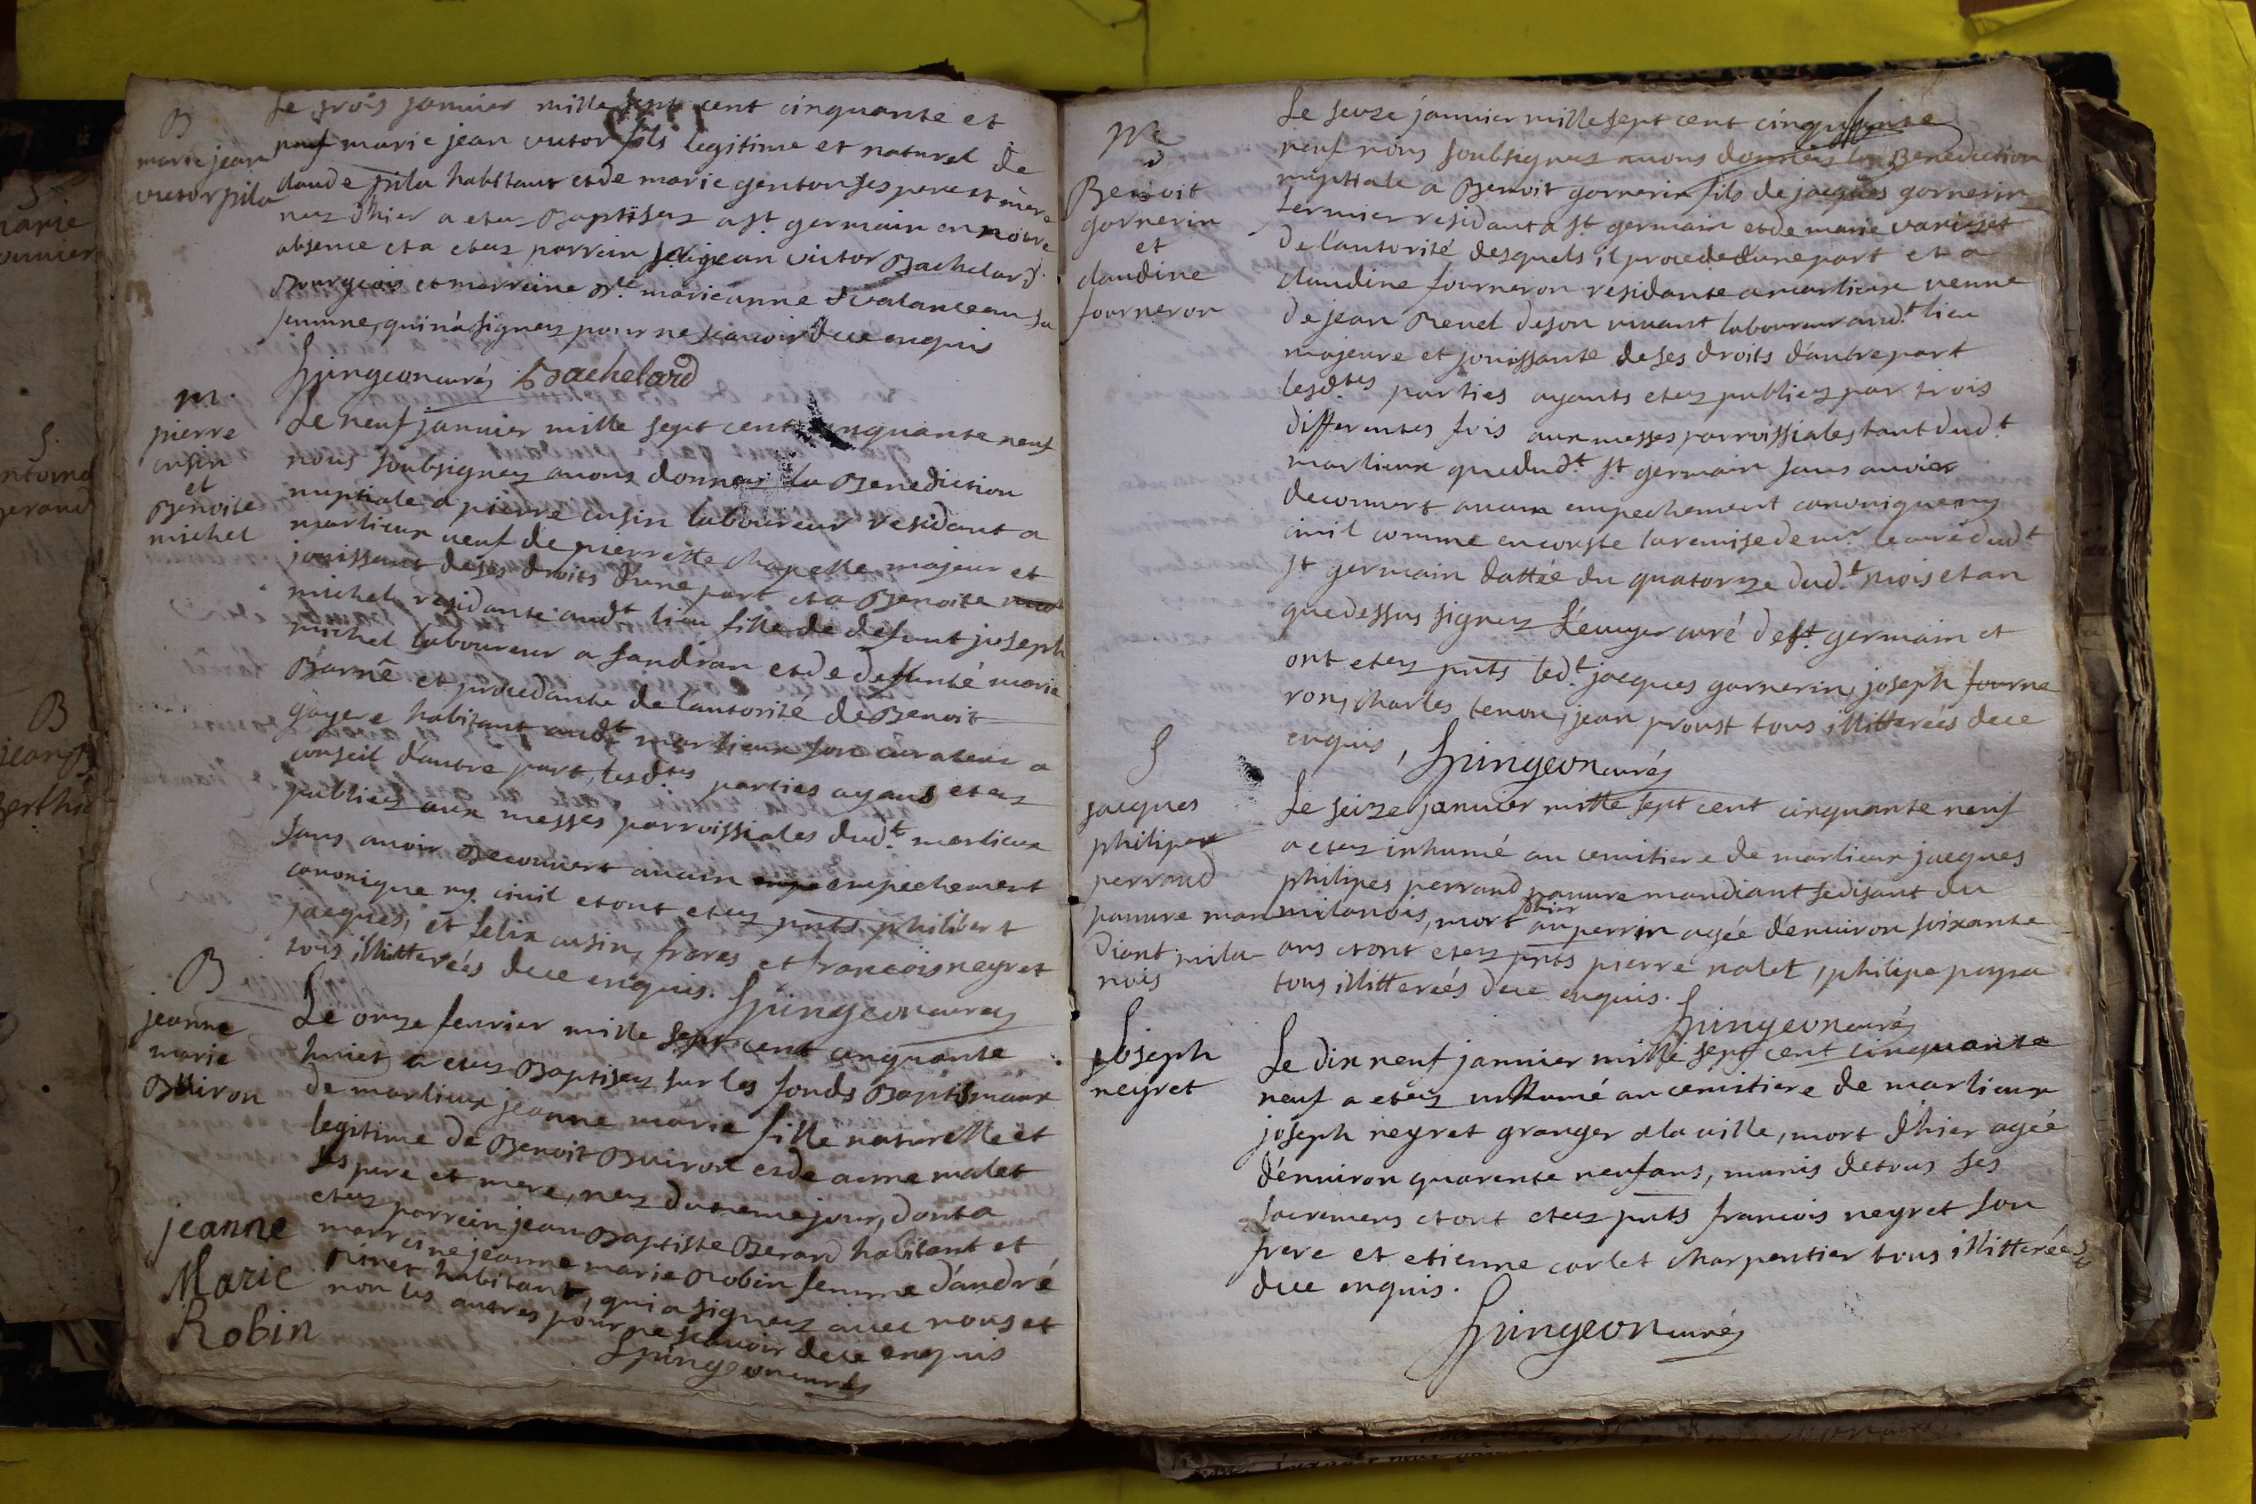 B
marie jean
victor pila
Le trois janvier mille sept cent cinquante et
neuf marie jean victor fils legitime et naturel de
claude pila habitant et de marie genton ses pere et mere
nez d'hier a etez Baptisez a st germain en notre
absence et a etez parrein jean victor Bachelard
Bourgeois et marreine dlle marieanne sa
femme, qui n'a signez pour ne scavoir de ce enquis
Spingeon curéz Bachelard
m.
pierre
cusin
et
Benoite
michel
Le neuf janvier mille sept cent cinquante neuf
nous soubsignez avons donnez la Benediction
nuptiale a pierre cusin laboureur residant a
marlieux veuf de pierrette chapelle majeur et
jouissant de ses droits d'une part et a Benoite
michel residante audt lieu fille de defunt joseph
michel laboureur a sandran et de deffunté marie
Barne et procedante de l'autorité de Benoit
goyere habitant audt marlieux son curateur a
conseil d'autre part, lesdtes parties ayans etez
publiez aux messes parroissiales dudt. marlieux
sans avoir decouvert aucun empechement
canonique ny civil et ont etez pnts philibert
jacques, et felix cusin, freres et francois neyret
tous illitterées de ce enquis. Spingeon curez
B
jeanne
marie
Buiron
Le onze fevrier mille sept cent cinquante
huict a etez Baptisez sur les fonds Baptismaux
de marlieux jeanne marie fille naturelle et
legitime de Benoit Buiron et de anne malet
ses pere et mere, nez du meme jour, dont a
etez parrein jean Baptiste Berard habitant et
marreine jeanne marie Robin femme d'andré
Pinet habitant, qui a signez avec nous et
non les autres pour ne scavoir de ce enquis
Spingeon curéz
jeanne
Marie
Robin
Me
Benoit
gornerin
et
claudine
forneron
Le seize janvier mille sept cent cinquante
neuf nous soubsignez avons donnez la Benediction
nuptiale a Benoit gornerin fils de jacques gornerin
fermier residant a st germain et de marie variset
de l'autorité desquels il procede d'une part et a
claudine fourneron residante a marlieux veuve
de jean Revel de son vivant laboureur audt. lieu
majeure et jouissante de ses droits d'autre part
lesdtes parties ayants etez publiez par trois
differentes fois aux messes parroissiales tant dudt.
marlieux que dudt. st germain sans avoier
decouvert aucun empechement canonique ny
civil comme en conste la remise de mr. le curé dudt
st germain dattée du quatorze dudt. mois et an
que dessus signez Lécuyer curé de st. germain et
ont etez pnts ledt. jacques gornerin, joseph fourne
ron, charles tenon, jean proust tous illitterées de ce
enquis, Spingeon curéz
S
jacques
philipes
perraud
pauvre man
diant mila
nois
Le seize janvier mille sept cent cinquante neuf
a etez inhumé au cemitiere de marlieux jacques
philipes perraud pauvre mandiant se disant du
milanois, mort dhier au perrin agée d'environ soixante
ans et ont etez pnts pierre nalet, philipe payra
tous illitterées de ce enquis.
Spingeon curéz
Joseph
neyret
Le dix neuf janvier mille sept cent cinquante
neuf a etez inhumé au cemitiere de marlieux
joseph neyret granger a la ville, mort d'hier agée
d'environ quarente neuf ans, munis de tous ses
sacremens et ont etez pnts francois neyret son
frere et etienne carlet charpentier tous illitterées
de ce enquis.
Spingeon curéz